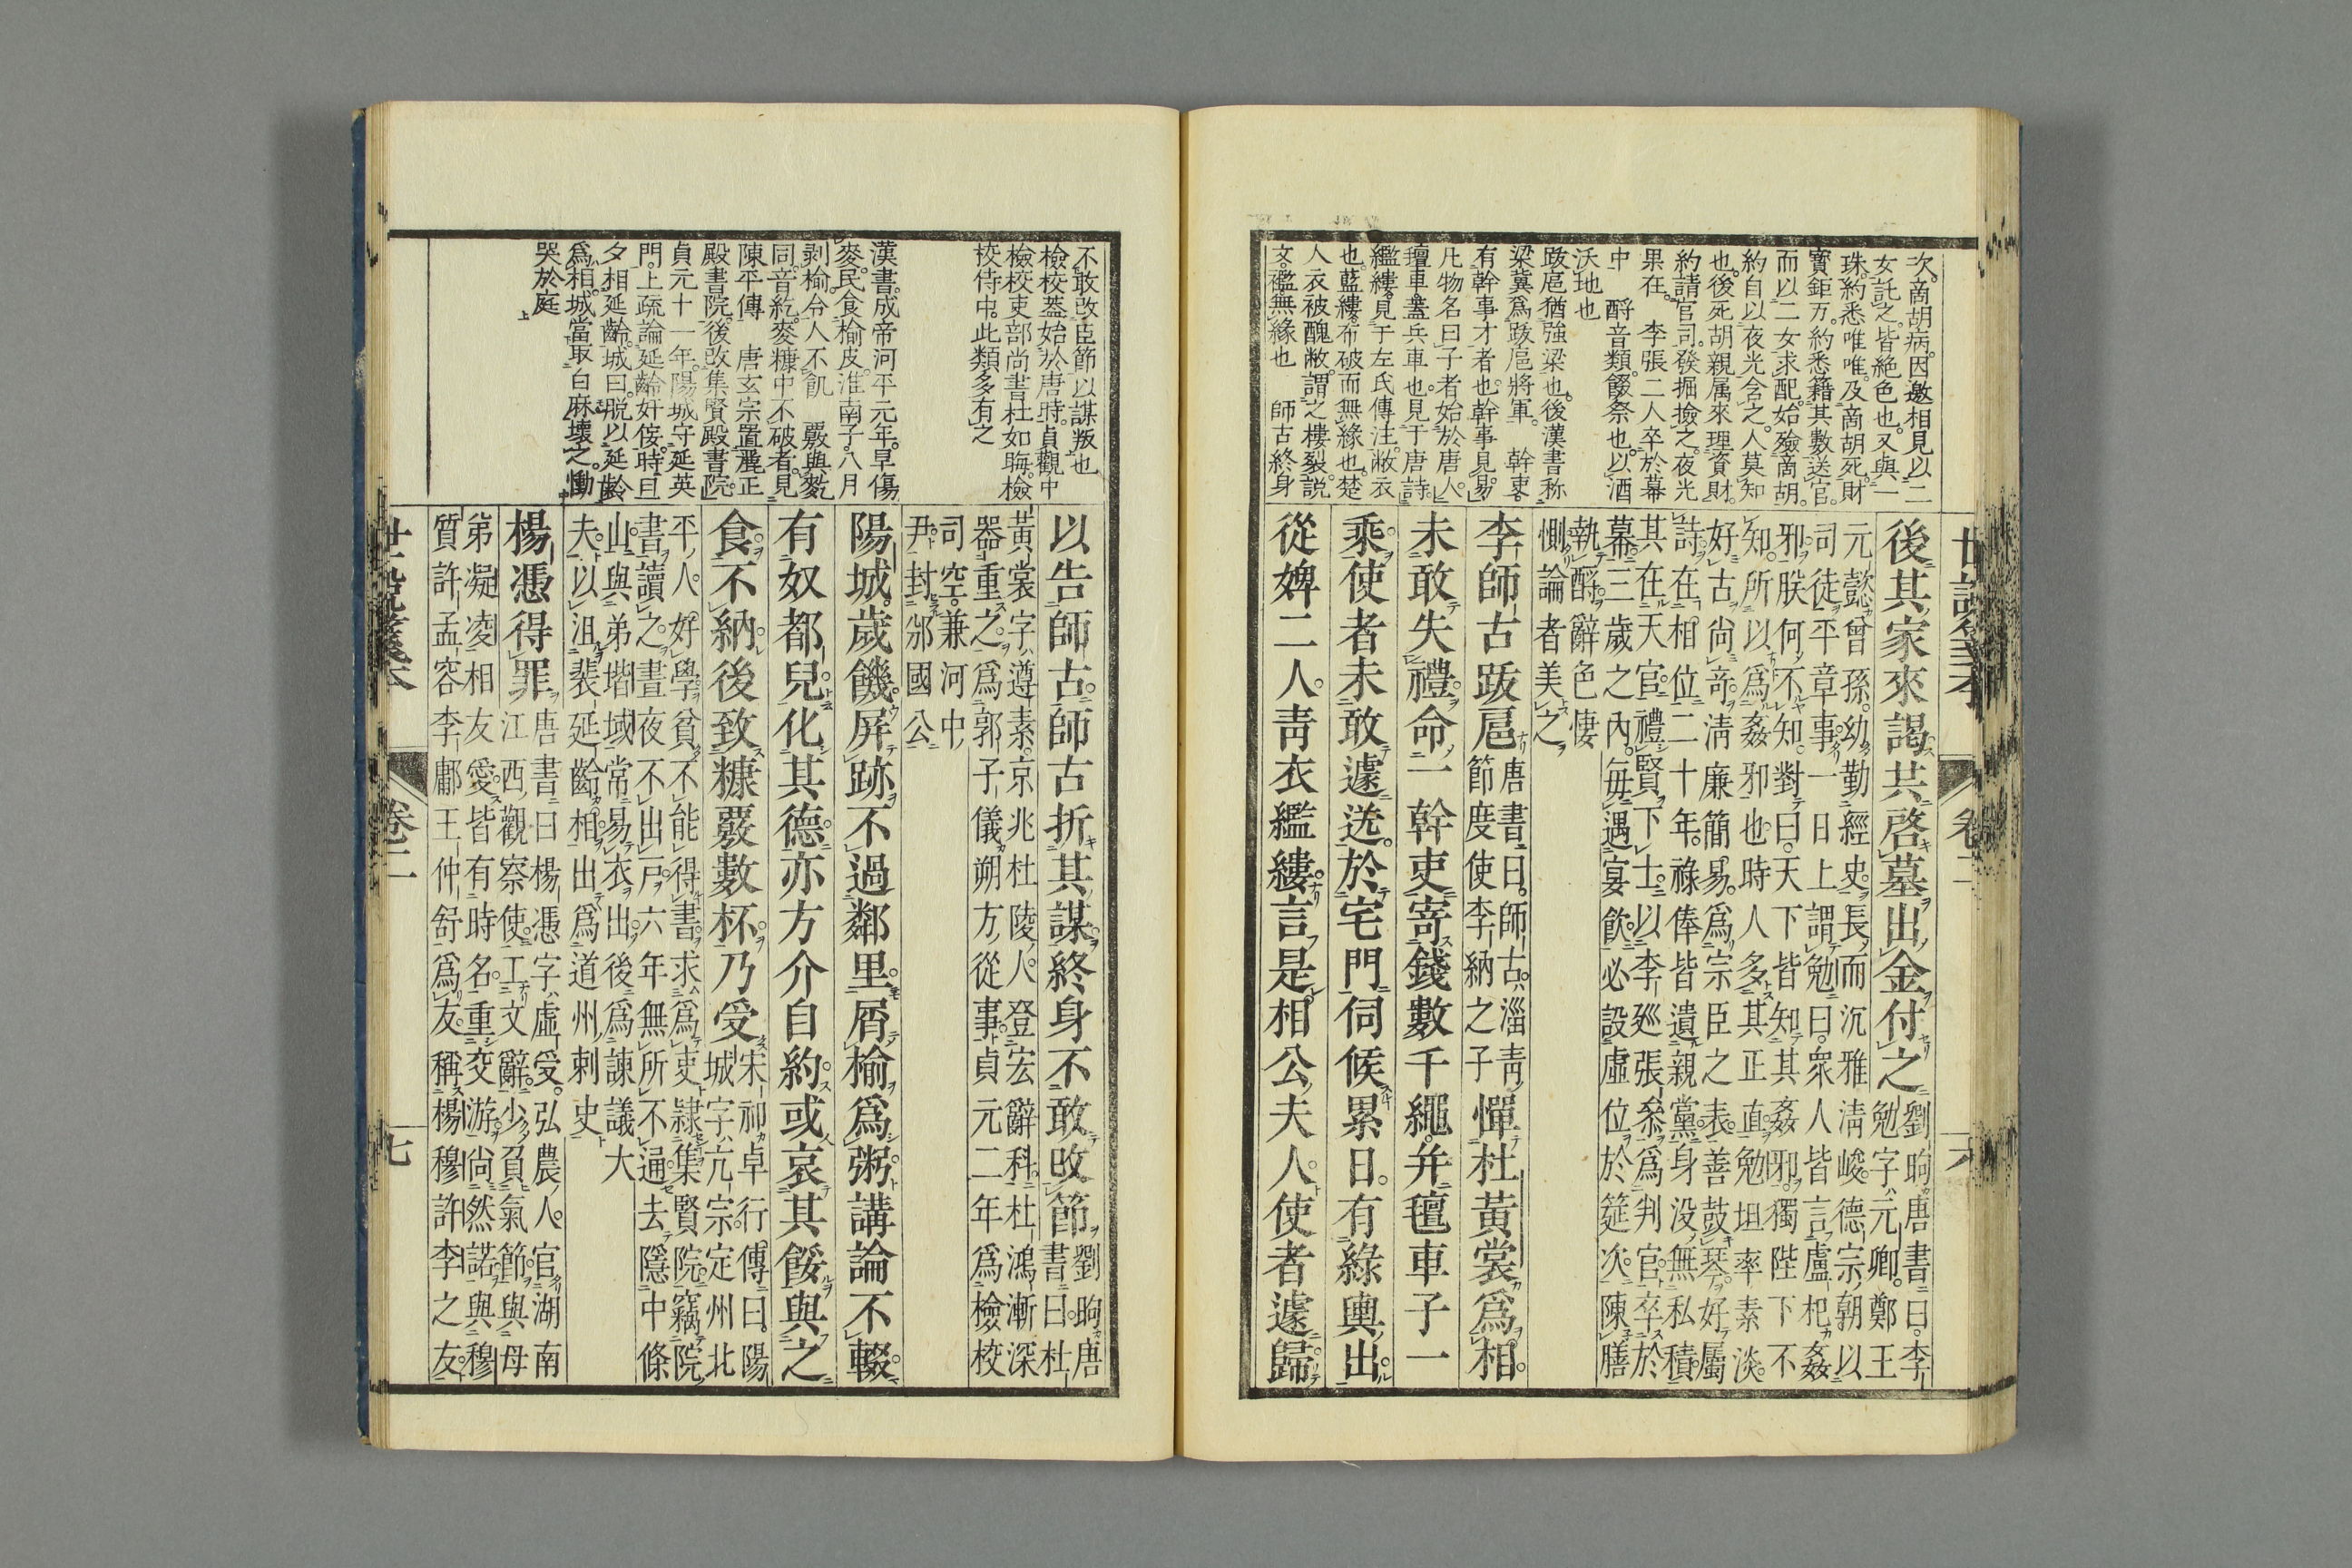 次。啇胡病。因邀相見以二
女託之。皆絶色也。又與一
珠。約悉唯唯。及啇胡死。財
寳鉅万。約悉籍其數送官。
而以二女求配。始殮啇胡。
約自以夜光含之。人莫知
也。後死胡親属來理資財。
約請官司。發掘撿之。夜光
果在。 李張二人卒於幕
中 酹音類。餟祭也。以酒
沃地也
跋扈猶強梁也。後漢書称
梁冀爲跋扈將軍。 幹吏。
有幹事才者也。幹事見易。
凡物名曰子者始於唐人。
氊車蓋兵車也。見于唐詩。
繿縷。見于左氏傳注。敝衣
也。藍縷。布破而無緣也。楚
人衣被醜敝。謂之樓裂。説
文。襤無緣也 師古終身
後其家來謁共啓墓出金付之
劉昫唐書曰。李
勉字元卿。鄭王
元懿曾孫。幼勤經史。長而沉雅淸峻。德宗朝以
司徒平章事。一日上謂勉曰。衆人皆言盧杞姦
邪。朕何不知。對曰。天下皆知其姦邪。獨陛下不
知。所以爲姦邪也。時人多其正直。勉坦率素淡。
好古尚奇。淸廉簡易。爲宗臣之表。善鼓琴。好屬
詩。在相位二十年。祿俸皆遺親黨。身没。無私積。
其在天官。禮賢下士。以李廵張叅爲判官。卒於
幕。三歲之內。毎遇宴飲。必設虛位於筵次。陳膳
執酹。辭色悽
惻論者美之
李師古跋扈
唐書曰。師古。淄靑
節度使李納之子
憚杜黃裳爲相。
未敢失禮。命一幹吏。寄錢數千繩。并氊車子一
乘。使者未敢遽送。於宅門伺候累日。有綠輿出。
從婢二人。靑衣繿縷。言是相公夫人。使者遽歸
以告師古。師古折其謀。終身不敢攺節
劉昫唐
書曰。杜
黃裳字遵素。京兆杜陵人。登宏辭科。杜鴻漸深
器重之。爲郭子儀朔方從事。貞元二年爲檢校
司空。兼河中
尹。封邠國公
陽城。歲饑。屏跡不過鄰里。屑榆爲粥。講論不輟。
有奴都兒。化其德。亦方介自約。或哀其餒。與之
食。不納。後致糠覈數杯。乃受
宋祁卓行傳曰。陽
城字亢宗。定州北
平人。好學。貧不能得書。求爲吏隷集賢院。竊院
書讀之。晝夜不出戸。六年無所不通。去隱中條
山。與弟堦域常易衣出。後爲諫議大
夫。以沮裴延齡相。出爲道州刺史
楊憑得罪
唐書曰。楊憑字虛受。弘農人。官湖南
江西觀察使。工文辭。少負氣節。與母
弟凝凌相友愛。皆有時名。重交游。尚然諾。與穆
質許孟容李鄘王仲舒爲友。稱楊穆許李之友。
不敢改臣節以謀叛也
檢校蓋始於唐時。貞觀中
檢校吏部尚書杜如晦。檢
校侍中。此類多有之
漢書。成帝河平元年。旱傷
麥。民食榆皮。淮南子。八月
剥榆。令人不飢 覈與麧
同。音紇。麥糠中不破者。見
陳平傳 唐玄宗置麗正
殿書院。後改集賢殿書院。
貞元十一年。陽城守延英
門。上疏論延齡奸侫。時旦
夕相延齡。城曰。脱以延齡
爲相。城當取白麻壞之。慟
哭於庭
世説箋本
卷二
六
卷二
七